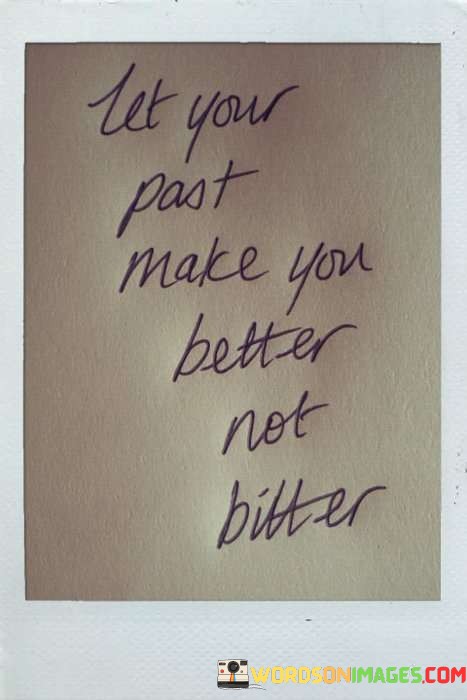 let your
past
make you
better
not
bitter
WORDSONIMAGES.COM